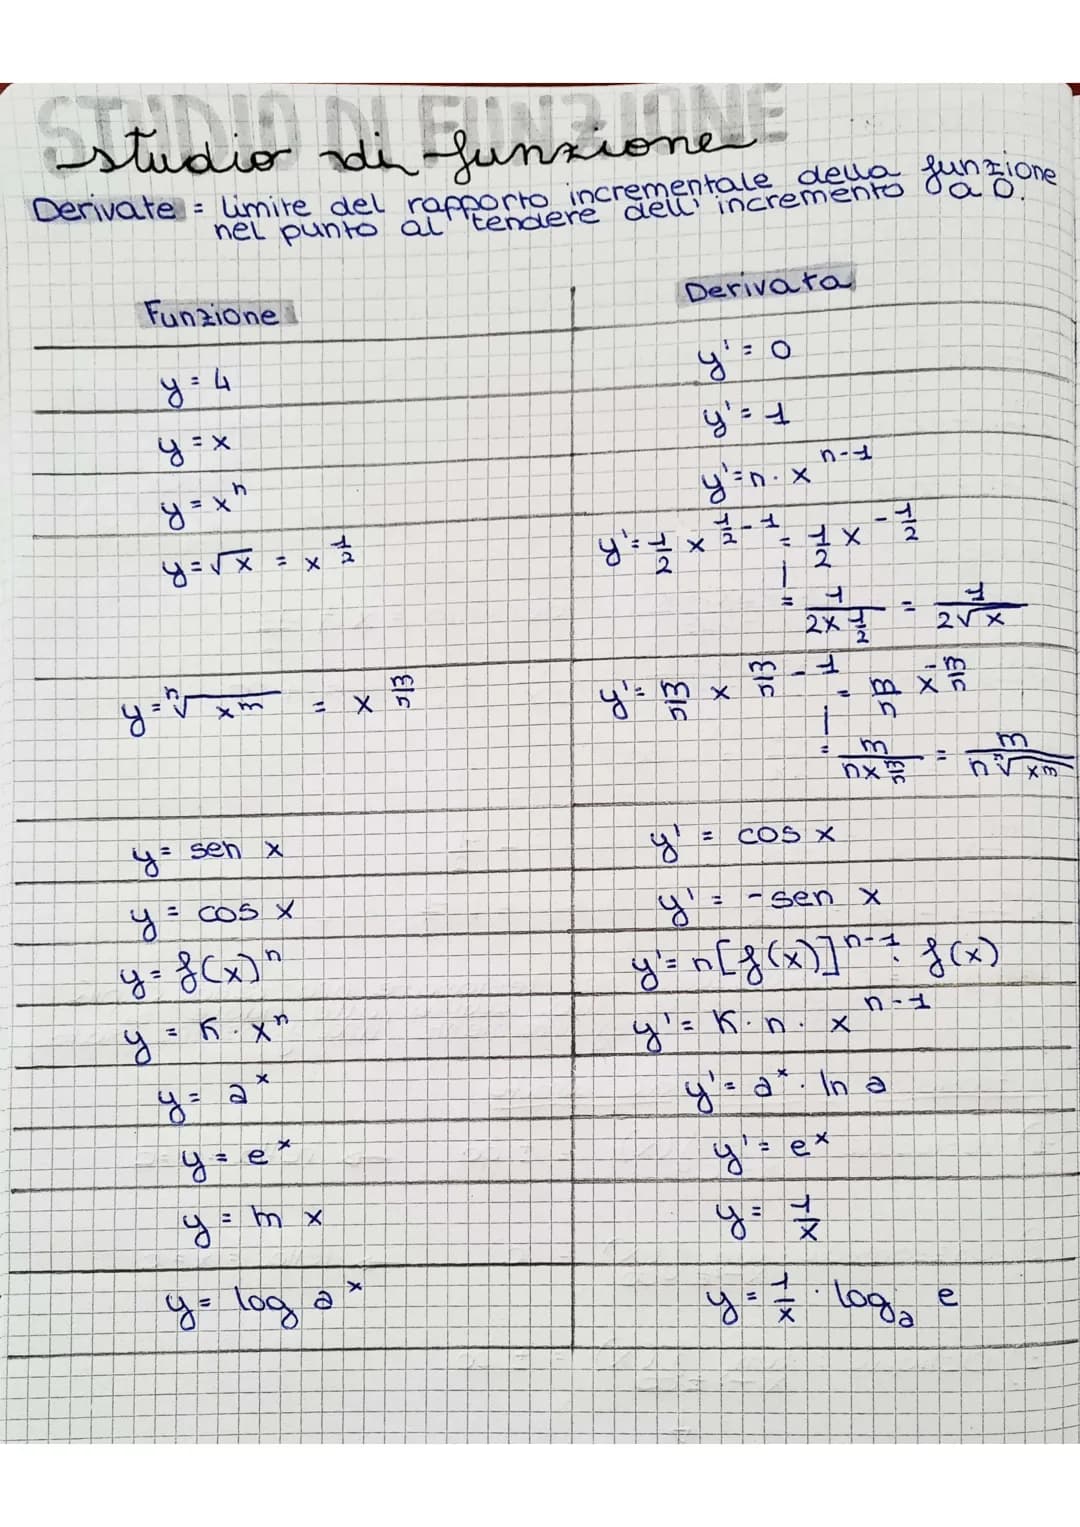 STUDIO DI FUNZIONE
studio di funzione
Derivate = limite del rapporto incrementale della funzione
nel punto al tendere dell' incremento a 0.
Funzione Derivata
y = 4 y' = 0
y = x y' = 1
y = xⁿ y' = n · x^(n-1)
y = √x = x^(1/2) y' = 1/2 x^(1/2 - 1) = 1/2 x^(-1/2)
= 1/(2x^(1/2)) = 1/(2√x)
y = ⁿ√(x^m) = x^(m/n) y' = m/n x^(m/n - 1) = m/n x^(-m/n)
= m/(nx^(m/n)) = m/(n ⁿ√(x^m))
y = sen x y' = cos x
y = cos x y' = -sen x
y = f(x)ⁿ y' = n[f(x)]^(n-1) · f(x)
y = K · xⁿ y' = K · n · x^(n-1)
y = a^x y' = a^x · ln a
y = e^x y' = e^x
y = m x y = 1/x
y = log a^x y = 1/x · logₐ e